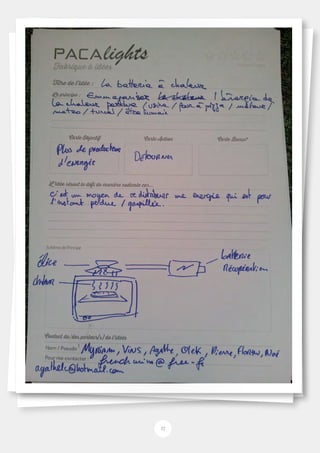 PACAlights
Fabrique à idées
Titre de l'idée : La batterie à chaleur
Le principe : Emmagasiner l'énergie de
la chaleur perdue / usine / four à pizza /
metro / tunnel / être humain
Carte Objectif
Carte Action
Carte Bonus
Plus de production
d'energie
Détourner
L'idée réussit le défi de manière radicale car...
c'est un moyen de redistribuer une énergie qui est pour
l'instant perdue / gaspillée.
Schéma de Principe
hélice
batterie
récupération
chaleur
Contact du (des porteurs) de l'idée
Nom / Pseudo : Myriam, Vins, Agathe, Olek, Pierre, Florian,
Pour me contacter : @free.fr
@hotmail.com
12